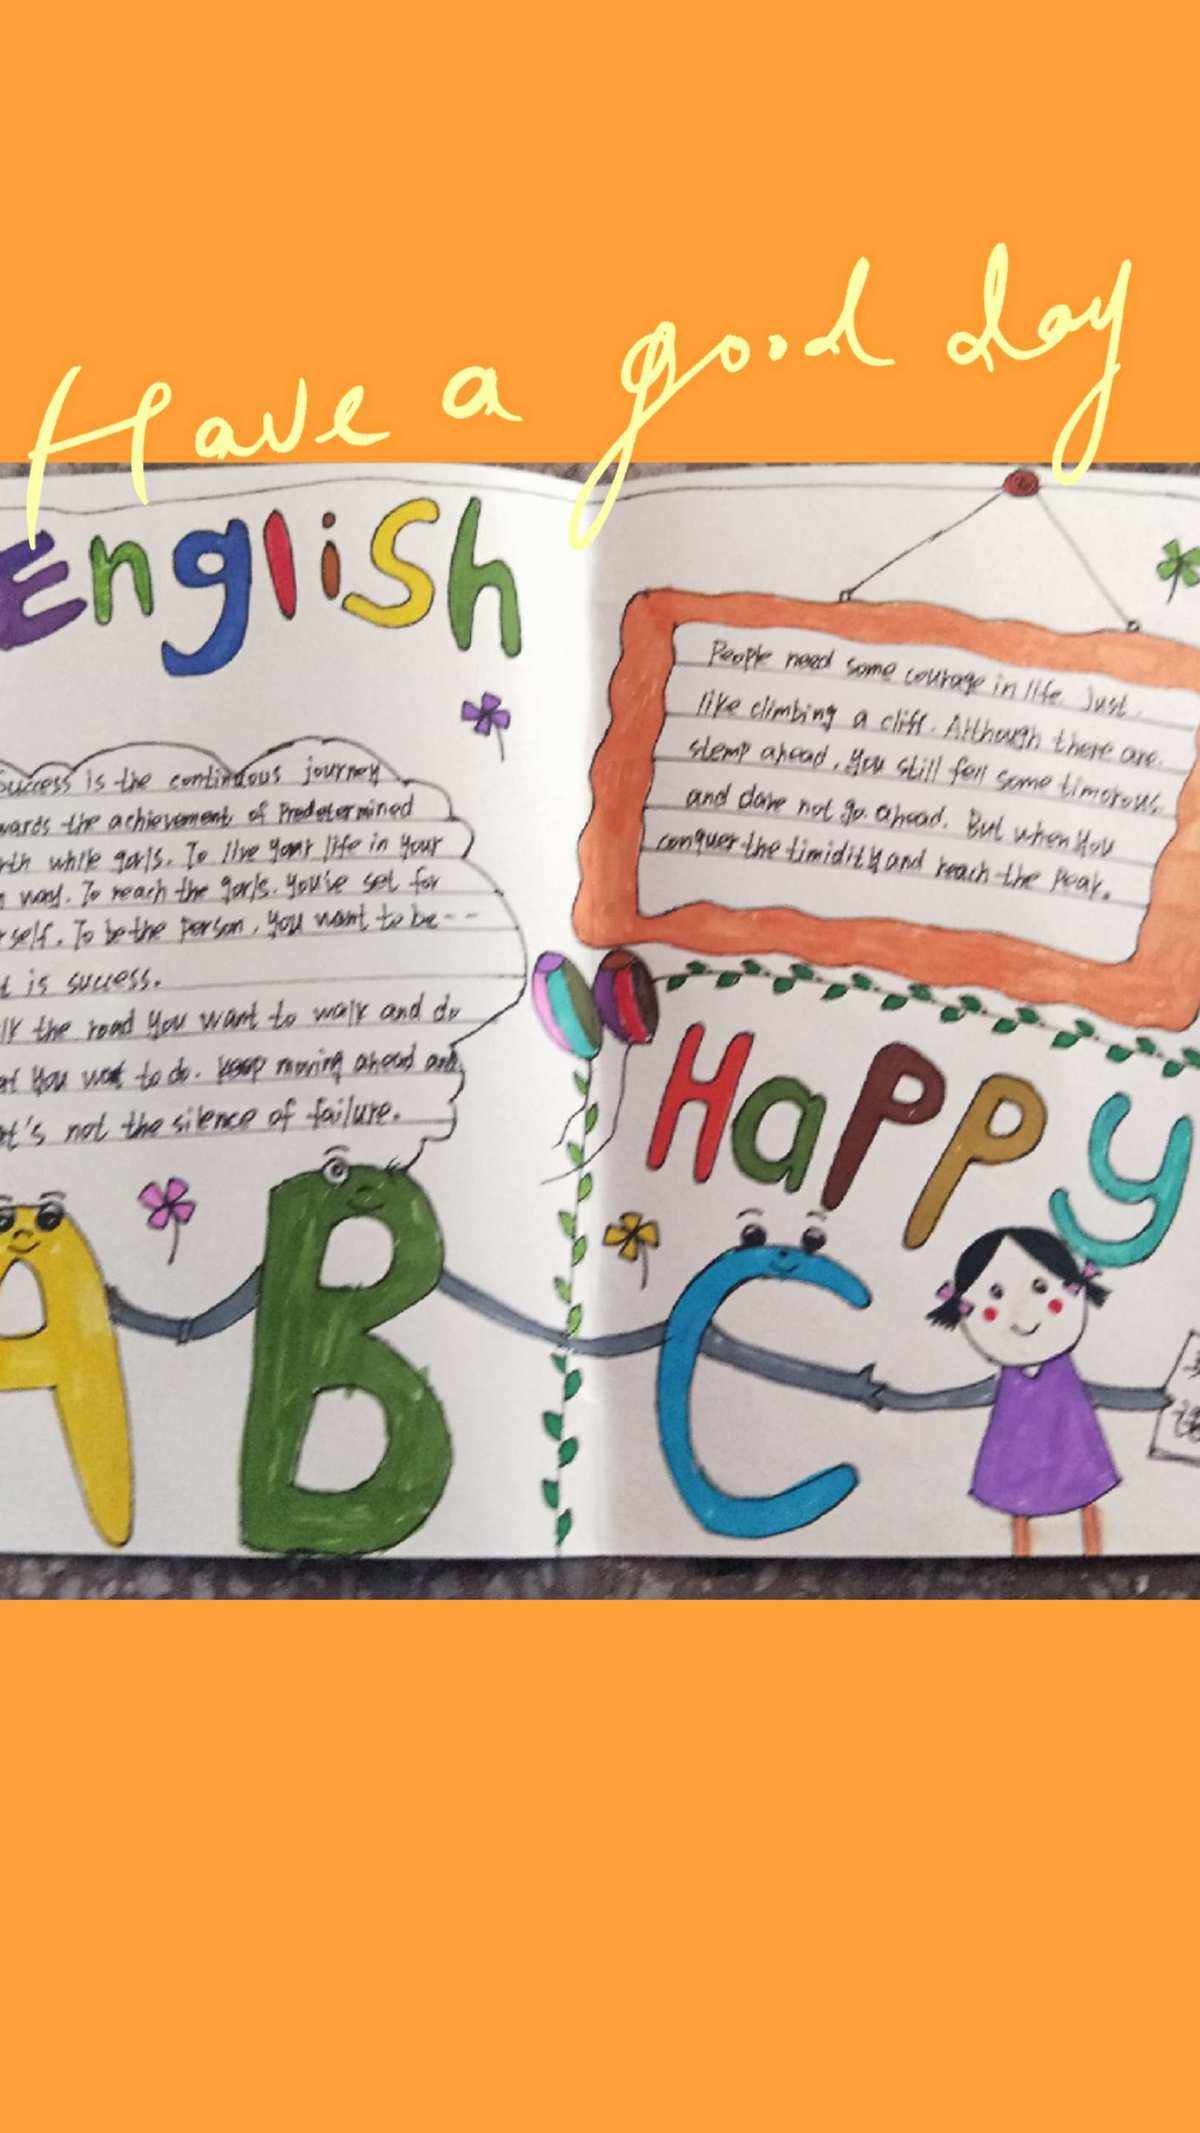 Have a good day
English
Success is the continuous journey
wards the achievement of Predetermined
rth while gorls. To live your life in your
n way. To reach the gorls. you've set for
rself. To be the person, you want to be--
t is success.
lk the road you want to walk and do
at you want to do. keep moving ahead and
at's not the silence of failure.
People need some courage in life. Just
like climbing a cliff. Although there are
stemp ahead, you still fell some timorous.
and dare not go ahead. But when you
conquer the timidity and reach the peak.
Happy
A B C